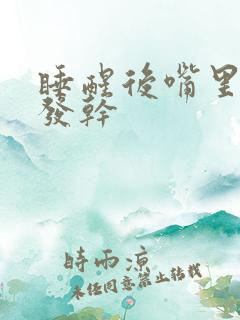 睡醒後嘴里
發幹
時雨涼
未經同意禁止轉載